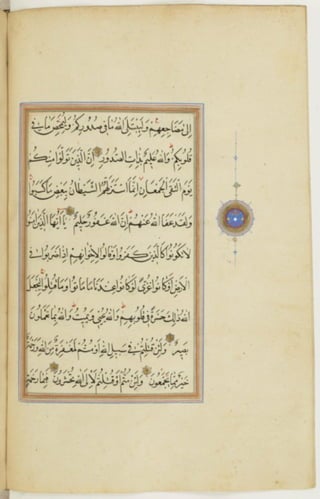 إلى مضاجعهم وليبتلي الله ما في صدوركم وليمحص ما في
قلوبكم والله عليم بذات الصدور إن الذين تولوا منكم
يوم التقى الجمعان إنما استزلهم الشيطان ببعض ما كسبوا
ولقد عفا الله عنهم إن الله غفور حليم يا أيها الذين آمنوا
لا تكونوا كالذين كفروا وقالوا لإخوانهم إذا ضربوا في
الأرض أو كانوا غزى لو كانوا عندنا ما ماتوا وما قتلوا ليجعل
الله ذلك حسرة في قلوبهم والله يحيي ويميت والله بما تعملون
بصير ولئن قتلتم في سبيل الله أو متم لمغفرة من الله ورحمة
خير مما يجمعون ولئن متم أو قتلتم لإلى الله تحشرون فبما رحمة